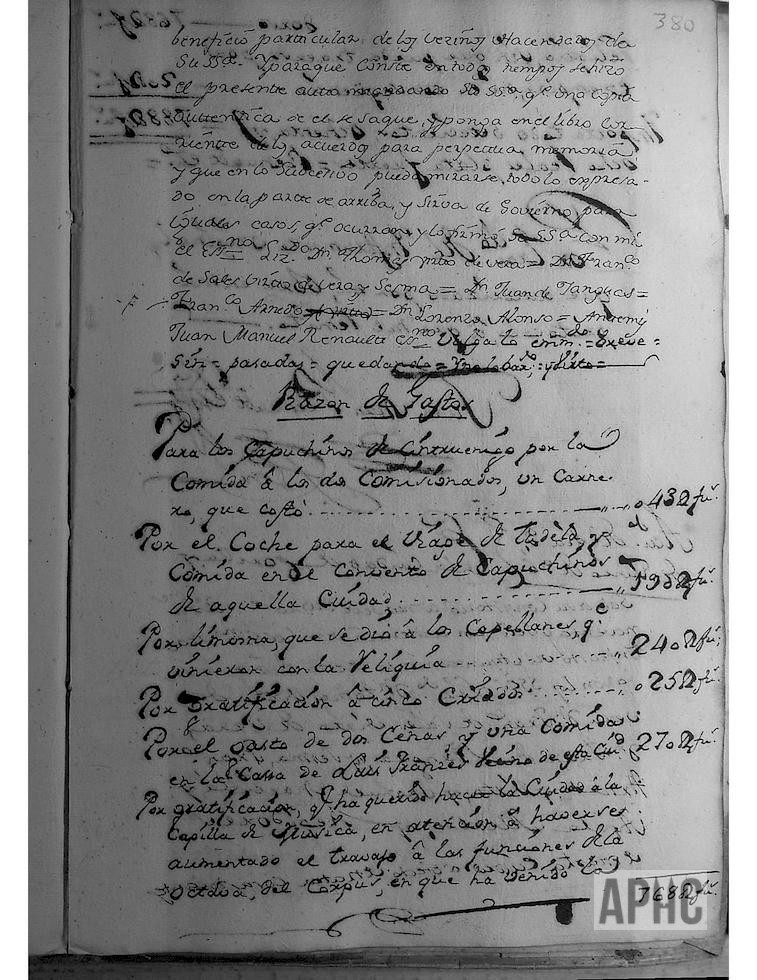 380
beneficio particular de los vezinos Hacendados de
Su SSª. Y para que conste en todos tiempos se hizo
el presente auto mandando Su SSª. qe. una copia
authentica de el se saque, y ponga en el libro cor-
riente de los acuerdos para perpetua memoria,
y que en lo subcesivo pueda mirarse todo lo expresa-
do en la parte de arriba, y sirva de Govierno para
iguales casos qe. ocurran, y lo firmó Su SSª. con mi
el Essno. Lizdo. Dn. Thomas de Vera = Dn. Franco.
de Sales de Vera y Sesma = Dn. Juan de Tanguas =
Franco. Arnedo = Dn. Lorenzo Alonso = Antemi
Juan Manuel Renault esno.
sin = pasadas = quedando =
Razon de Gastos
Para los Capuchinos de Cintruenigo por la
Comida â los dos Comisionados, un Carne-
ro, que costó 043
Por el Coche para el viage de Tudela y
Comida en el Convento de Capuchinos
de aquella Ciudad
Por limosna, que se dió â los Capellanes, qe.
vinieron con la Reliquia 240
Por Gratificacion â cinco Criados 025
Por el gasto de dos Cenas y una Comida
en la Cassa de Luis Vecino de esta Ciud. 270
Por gratificacion, qe. ha querido hacer la Ciudad â la
Capilla de Musica, en atencion â haverse
aumentado el travajo â las funciones de la
Octava, del Corpus, en que ha venido la
768
APHC